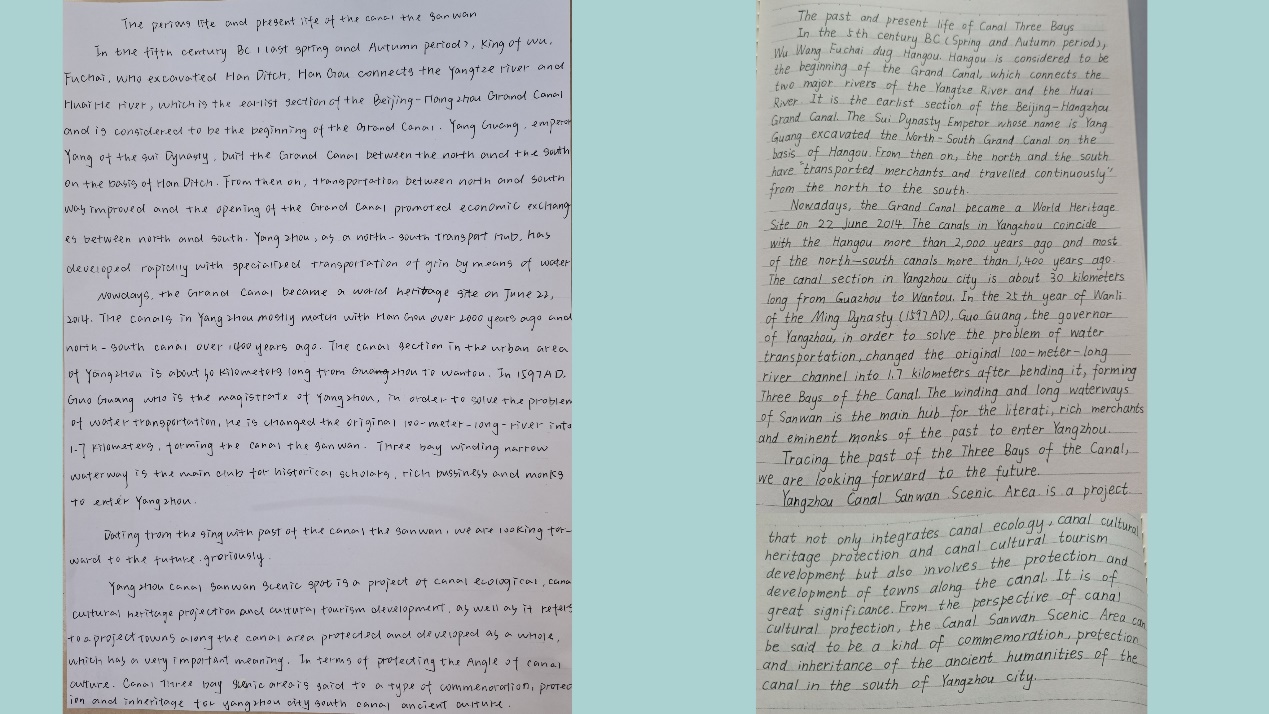 The perious life and present life of the canal the sanwan
In the fifth century BC (last spring and Autumn period), King of Wu,
Fuchai, who excavated Han Ditch, Han Gou connects the Yangtze river and
HuaiHe river, which is the earlist section of the Beijing-Hangzhou Grand Canal
and is considered to be the beginning of the Grand Canal. Yang Guang, emperor
Yang of the sui Dynasty, buil the Grand Canal between the north and the south
on the basis of Han Ditch. From then on, transportation between north and south
was improved and the opening of the Grand Canal promoted economic exchang
es between north and south. Yangzhou, as a north-south transport Hub, has
developed rapidly with specialized transportation of grin by means of water
Nowdays, the Grand Canal became a world heritage site on June 22,
2014. The canals in Yangzhou mostly match with Han Gou over 2000 years ago and
north-south canal over 1400 years ago. The canal section in the urban area
of Yangzhou is about 30 kilometers long from Guangzhou to wantou. In 1597 AD.
Guo Guang who is the magistrate of Yangzhou, in order to solve the problem
of water transportation, he is changed the original 100-meter-long-river into
1.7 kilometers, forming the canal the sanwan. Three bay winding narrow
waterway is the main club for historical scholars, rich bussiness and monks
to enter Yangzhou.
Dating from the sing with past of the canal the sanwan, we are looking for-
ward to the future groriously.
Yangzhou canal sanwan scenic spot is a project of canal ecological, cana
cultural heritage projection and cultural tourism development, as well as it refers
to a project towns along the canal area protected and developed as a whole,
which has a very important meaning. In terms of protecting the Angle of canal
culture. Canal Three bay scenic area is said to a type of commenoration, protec
ion and inheritage for yangzhou city south canal ancient culture.
The past and present life of Canal Three Bays
In the 5th century BC (Spring and Autumn period),
Wu Wang Fuchai dug Hangou. Hangou is considered to be
the beginning of the Grand Canal, which connects the
two major rivers of the Yangtze River and the Huai
River. It is the earlist section of the Beijing-Hangzhou
Grand Canal. The Sui Dynasty Emperor whose name is Yang
Guang excavated the North-South Grand Canal on the
basis of Hangou. From then on, the north and the south
have "transported merchants and travelled continuously"
from the north to the south.
Nowadays, the Grand Canal became a World Heritage
Site on 22 June 2014. The canals in Yangzhou coincide
with the Hangou more than 2,000 years ago and most
of the north-south canals more than 1,400 years ago.
The canal section in Yangzhou city is about 30 kilometers
long from Guazhou to Wantou. In the 25th year of Wanli
of the Ming Dynasty (1597 AD), Guo Guang, the governor
of Yangzhou, in order to solve the problem of water
transportation, changed the original 100-meter-long
river channel into 1.7 kilometers after bending it, forming
Three Bays of the Canal. The winding and long waterways
of Sanwan is the main hub for the literati, rich merchants
and eminent monks of the past to enter Yangzhou.
Tracing the past of the Three Bays of the Canal,
we are looking forward to the future.
Yangzhou Canal Sanwan Scenic Area is a project
that not only integrates canal ecology, canal cultural
heritage protection and canal cultural tourism
development but also involves the protection and
development of towns along the canal. It is of
great significance. From the perspective of canal
cultural protection, the Canal Sanwan Scenic Area can
be said to be a kind of commemoration, protection
and inheritance of the ancient humanities of the
canal in the south of Yangzhou city.